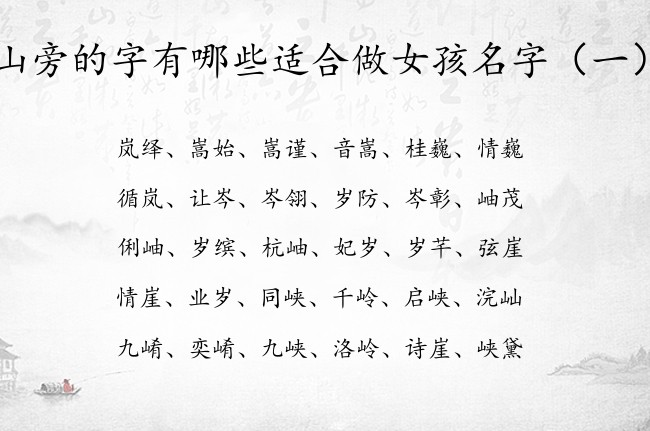 山旁的字有哪些适合做女孩名字（一）
岚绎、嵩始、嵩谨、音嵩、桂巍、情巍
循岚、让岑、岑翎、岁防、岑彰、岫茂
俐岫、岁缤、杭岫、妃岁、岁芊、弦崖
情崖、业岁、同峡、千岭、启峡、浣屾
九崤、奕崤、九峡、洛岭、诗崖、峡黛